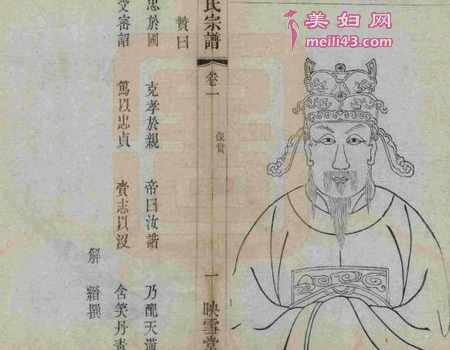 美妇网
meili43.com
氏宗譜 卷一 一 映雪堂
贊曰
忠於國 克孝於親 帝曰汝諧 乃 天
受密詔 篤以忠貞 賫志以沒 含笑丹青
解縉撰